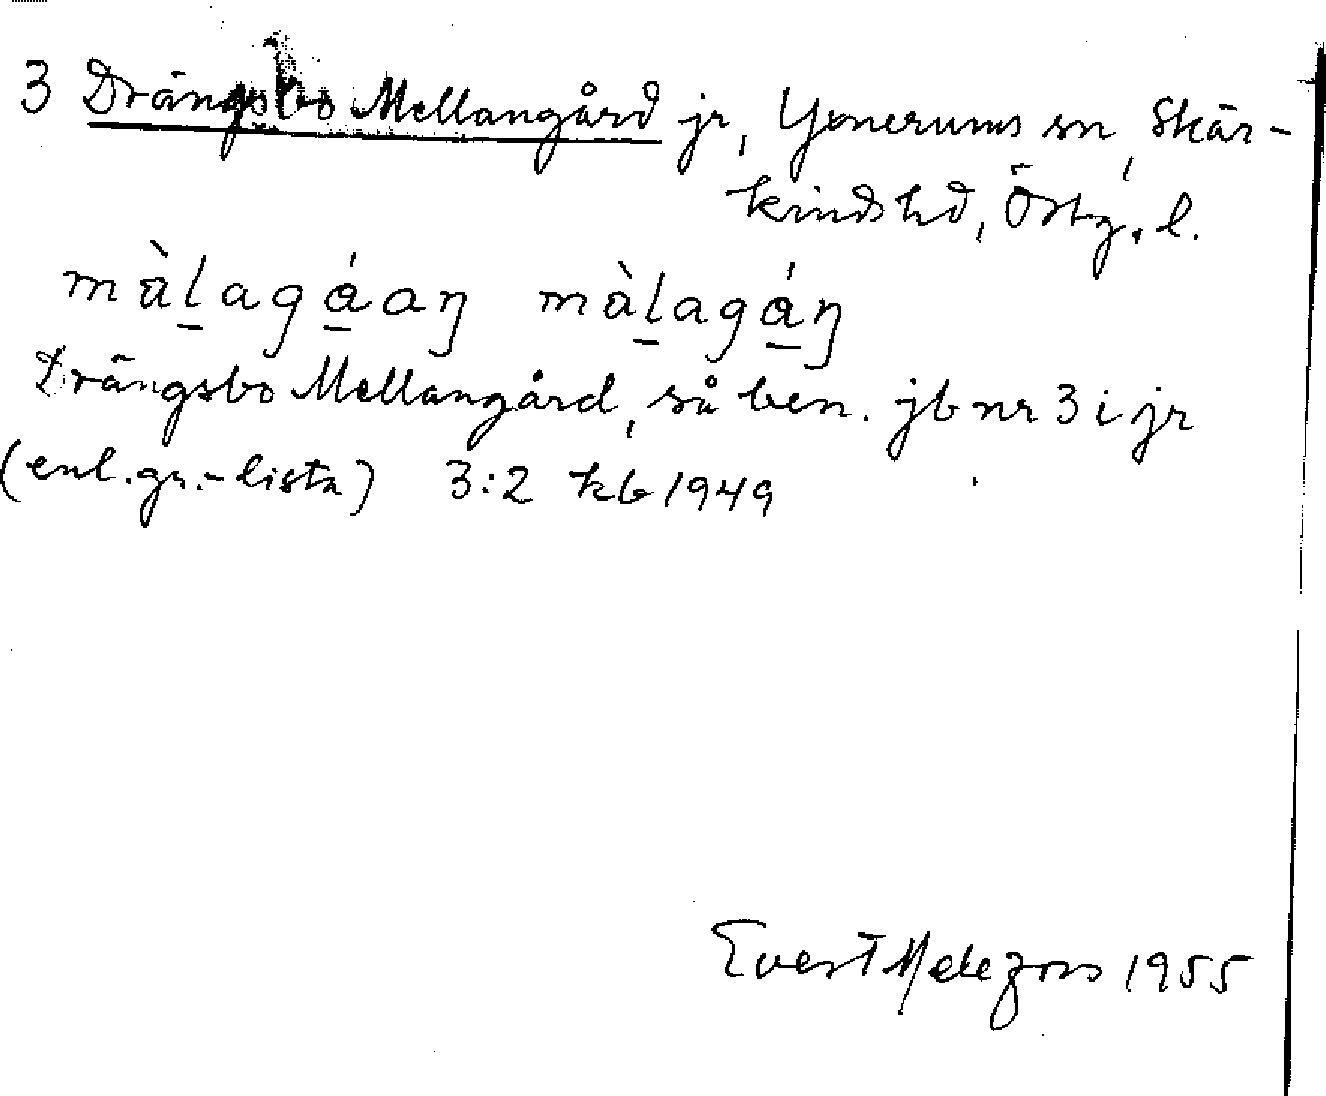 3 Drängsbo Mellangård jr, Yxnerums sn, Skär-
kinds hd, Östg. l.
màḻagá̱aŋ màḻagá̱ŋ
Drängsbo Mellangård, så ben. jb nr 3 i jr
(enl. gr.-lista) 3:2 kb 1949
Evert Melefors 1955